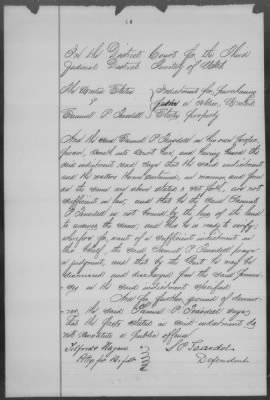 In the District Court for the Third
Judicial District Territory of Utah
The United States
v
Samuel P. Teasdel
Indictment for purchasing
a stolen United
States property
And the said Samuel P. Teasdel in his own proper
person, cometh into Court here, and having heard the
said indictment read, says that the said indictment
and the matters therein contained, in manner and form
as the same are above stated & set forth, are not
sufficient in law, and that he the said Samuel
P. Teasdel is not bound by the law of the land
to answer the same, and this he is ready to verify;
wherefore for want of a sufficient indictment in
this behalf, the said Samuel P. Teasdel prays
a judgment, and that by the Court he may be
dismissed and discharged from the said premises
in the said indictment specified
And for further grounds of demur-
rer the said Samuel P. Teasdel says
that the facts stated in said indictment do
not constitute a public offense
S P Teasdel
Defendent
Tilford & Hagan
Attys for Deft